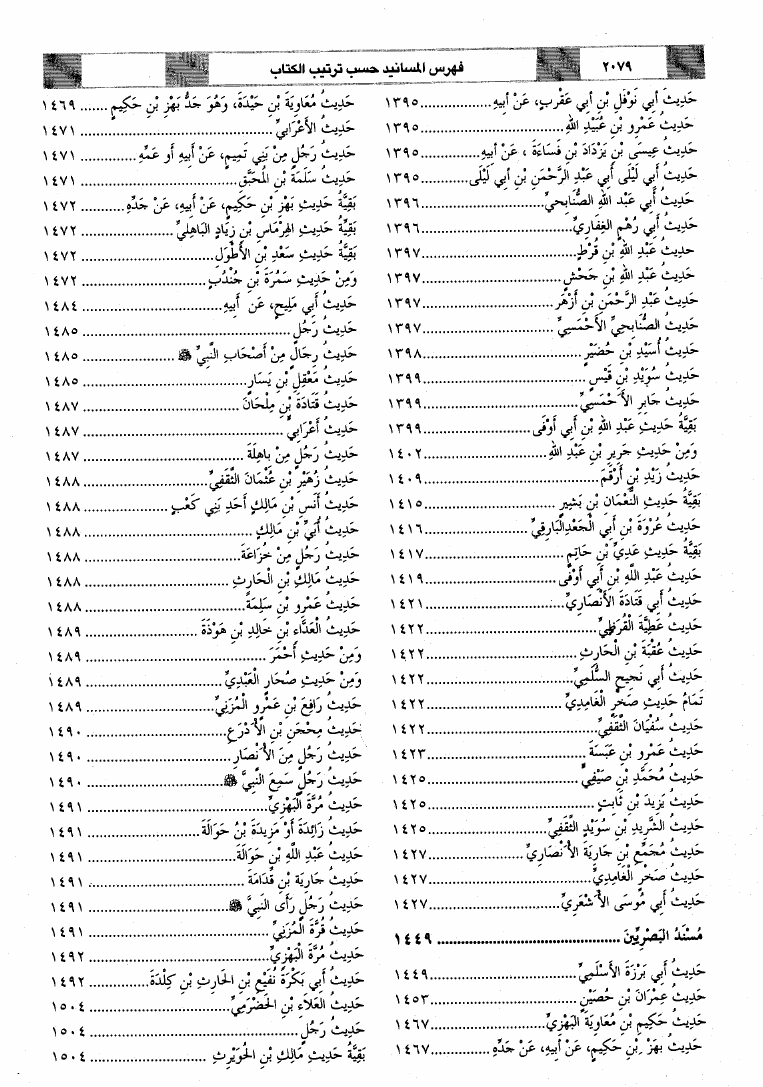 ٢٠٧٩
فهرس المسانيد حسب ترتيب الكتاب
حَدِيثُ أَبِي نَوْفَلِ بْنِ أَبِي عَقْرَبٍ، عَنْ أَبِيهِ .................. ١٣٩٥
حَدِيثُ عَمْرِو بْنِ عُبَيْدِ اللهِ .................. ١٣٩٥
حَدِيثُ عِيسَى بْنِ يَزْدَادَ بْنِ فَسَاءَةَ ، عَنْ أَبِيهِ .................. ١٣٩٥
حَدِيثُ أَبِي لَيْلَى أَبِي عَبْدِ الرَّحْمَنِ بْنِ أَبِي لَيْلَى .................. ١٣٩٥
حَدِيثُ أَبِي عَبْدِ اللهِ الصُّنَابِحِيِّ .................. ١٣٩٦
حَدِيثُ أَبِي رُهْمٍ الغِفَارِيِّ .................. ١٣٩٦
حَدِيثُ عَبْدِ اللهِ بْنِ قُرْطٍ .................. ١٣٩٧
حَدِيثُ عَبْدِ اللهِ بْنِ جَحْشٍ .................. ١٣٩٧
حَدِيثُ عَبْدِ الرَّحْمَنِ بْنِ أَزْهَرَ .................. ١٣٩٧
حَدِيثُ الصُّنَابِحِيِّ الأَحْمَسِيِّ .................. ١٣٩٧
حَدِيثُ أُسَيْدِ بْنِ حُضَيْرٍ .................. ١٣٩٨
حَدِيثُ سُوَيْدِ بْنِ قَيْسٍ .................. ١٣٩٩
حَدِيثُ جَابِرٍ الأَحْمَسِيِّ .................. ١٣٩٩
بَقِيَّةُ حَدِيثِ عَبْدِ اللهِ بْنِ أَبِي أَوْفَى .................. ١٣٩٩
وَمِنْ حَدِيثِ جَرِيرِ بْنِ عَبْدِ اللهِ .................. ١٤٠٢
حَدِيثُ زَيْدِ بْنِ أَرْقَمَ .................. ١٤٠٩
بَقِيَّةُ حَدِيثِ النُّعْمَانِ بْنِ بَشِيرٍ .................. ١٤١٥
حَدِيثُ عُرْوَةَ بْنِ أَبِي الْجَعْدِ الْبَارِقِيِّ .................. ١٤١٦
بَقِيَّةُ حَدِيثِ عَدِيِّ بْنِ حَاتِمٍ .................. ١٤١٧
حَدِيثُ عَبْدِ اللَّهِ بْنِ أَبِي أَوْفَى .................. ١٤١٩
حَدِيثُ أَبِي قَتَادَةَ الأَنْصَارِيِّ .................. ١٤٢١
حَدِيثُ عَطِيَّةَ الْقُرَظِيِّ .................. ١٤٢٢
حَدِيثُ عُقْبَةَ بْنِ الْحَارِثِ .................. ١٤٢٢
حَدِيثُ أَبِي نَجِيحٍ السُّلَمِيِّ .................. ١٤٢٢
تَمَامُ حَدِيثِ صَخْرٍ الْغَامِدِيِّ .................. ١٤٢٢
حَدِيثُ سُفْيَانَ الثَّقَفِيِّ .................. ١٤٢٢
حَدِيثُ عَمْرِو بْنِ عَبَسَةَ .................. ١٤٢٣
حَدِيثُ مُحَمَّدِ بْنِ صَيْفِيٍّ .................. ١٤٢٥
حَدِيثُ يَزِيدَ بْنِ ثَابِتٍ .................. ١٤٢٥
حَدِيثُ الشَّرِيدِ بْنِ سُوَيْدٍ الثَّقَفِيِّ .................. ١٤٢٥
حَدِيثُ مُجَمِّعِ بْنِ جَارِيَةَ الأَنْصَارِيِّ .................. ١٤٢٧
حَدِيثُ صَخْرٍ الْغَامِدِيِّ .................. ١٤٢٧
حَدِيثُ أَبِي مُوسَى الأَشْعَرِيِّ .................. ١٤٢٧
مُسْنَدُ البَصْرِيِّينَ .................. ١٤٤٩
حَدِيثُ أَبِي بَرْزَةَ الأَسْلَمِيِّ .................. ١٤٤٩
حَدِيثُ عِمْرَانَ بْنِ حُصَيْنٍ .................. ١٤٥٣
حَدِيثُ حَكِيمِ بْنِ مُعَاوِيَةَ الْبَهْزِيِّ .................. ١٤٦٧
حَدِيثُ بَهْزِ بْنِ حَكِيمٍ، عَنْ أَبِيهِ، عَنْ جَدِّهِ .................. ١٤٦٧
حَدِيثُ مُعَاوِيَةَ بْنِ حَيْدَةَ، وَهُوَ جَدُّ بَهْزِ بْنِ حَكِيمٍ .................. ١٤٦٩
حَدِيثُ الأَعْرَابِيِّ .................. ١٤٧١
حَدِيثُ رَجُلٍ مِنْ بَنِي تَمِيمٍ، عَنْ أَبِيهِ أَو عَمِّهِ .................. ١٤٧١
حَدِيثُ سَلَمَةَ بْنِ المُحَبِّقِ .................. ١٤٧١
بَقِيَّةُ حَدِيثِ بَهْزِ بْنِ حَكِيمٍ، عَنْ أَبِيهِ، عَنْ جَدِّهِ .................. ١٤٧٢
بَقِيَّةُ حَدِيثِ الهِرْمَاسِ بْنِ زِيَادٍ البَاهِلِيِّ .................. ١٤٧٢
بَقِيَّةُ حَدِيثِ سَعْدِ بْنِ الأَطْوَلِ .................. ١٤٧٢
وَمِنْ حَدِيثِ سَمُرَةَ بْنِ جُنْدُبٍ .................. ١٤٧٢
حَدِيثُ أَبِي مَلِيحٍ، عَنْ أَبِيهِ .................. ١٤٨٤
حَدِيثُ رَجُلٍ .................. ١٤٨٥
حَدِيثُ رِجَالٍ مِنْ أَصْحَابِ النَّبِيِّ ﷺ .................. ١٤٨٥
حَدِيثُ مَعْقِلِ بْنِ يَسَارٍ .................. ١٤٨٥
حَدِيثُ قَتَادَةَ بْنِ مِلْحَانَ .................. ١٤٨٧
حَدِيثُ أَعْرَابِيٍّ .................. ١٤٨٧
حَدِيثُ رَجُلٍ مِنْ بَاهِلَةَ .................. ١٤٨٧
حَدِيثُ زُهَيْرِ بْنِ عُثْمَانَ الثَّقَفِيِّ .................. ١٤٨٨
حَدِيثُ أَنَسِ بْنِ مَالِكٍ أَحَدِ بَنِي كَعْبٍ .................. ١٤٨٨
حَدِيثُ أُبَيِّ بْنِ مَالِكٍ .................. ١٤٨٨
حَدِيثُ رَجُلٍ مِنْ خُزَاعَةَ .................. ١٤٨٨
حَدِيثُ مَالِكِ بْنِ الْحَارِثِ .................. ١٤٨٨
حَدِيثُ عَمْرِو بْنِ سَلِمَةَ .................. ١٤٨٨
حَدِيثُ الْعَدَّاءِ بْنِ خَالِدِ بْنِ هَوْذَةَ .................. ١٤٨٩
وَمِنْ حَدِيثِ أَحْمَرَ .................. ١٤٨٩
وَمِنْ حَدِيثِ صُحَارٍ الْعَبْدِيِّ .................. ١٤٨٩
حَدِيثُ رَافِعِ بْنِ عَمْرٍو الْمُزَنِيِّ .................. ١٤٨٩
حَدِيثُ مِحْجَنِ بْنِ الأَدْرَعِ .................. ١٤٩٠
حَدِيثُ رَجُلٍ مِنَ الأَنْصَارِ .................. ١٤٩٠
حَدِيثُ رَجُلٍ سَمِعَ النَّبِيَّ ﷺ .................. ١٤٩٠
حَدِيثُ مُرَّةَ الْبَهْزِيِّ .................. ١٤٩١
حَدِيثُ زَائِدَةَ أَوْ مَزِيدَةَ بْنُ حَوَالَةَ .................. ١٤٩١
حَدِيثُ عَبْدِ اللَّهِ بْنِ حَوَالَةَ .................. ١٤٩١
حَدِيثُ جَارِيَةَ بْنِ قُدَامَةَ .................. ١٤٩١
حَدِيثُ رَجُلٍ رَأَى النَّبِيَّ ﷺ .................. ١٤٩١
حَدِيثُ قُرَّةَ الْمُزَنِيِّ .................. ١٤٩١
حَدِيثُ مُرَّةَ الْبَهْزِيِّ .................. ١٤٩٢
حَدِيثُ أَبِي بَكْرَةَ نُفَيْعِ بْنِ الحَارِثِ بْنِ كِلْدَةَ .................. ١٤٩٢
حَدِيثُ العَلاَءِ بْنِ الحَضْرَمِيِّ .................. ١٥٠٤
حَدِيثُ رَجُلٍ .................. ١٥٠٤
بَقِيَّةُ حَدِيثِ مَالِكِ بْنِ الحُوَيْرِثِ .................. ١٥٠٤